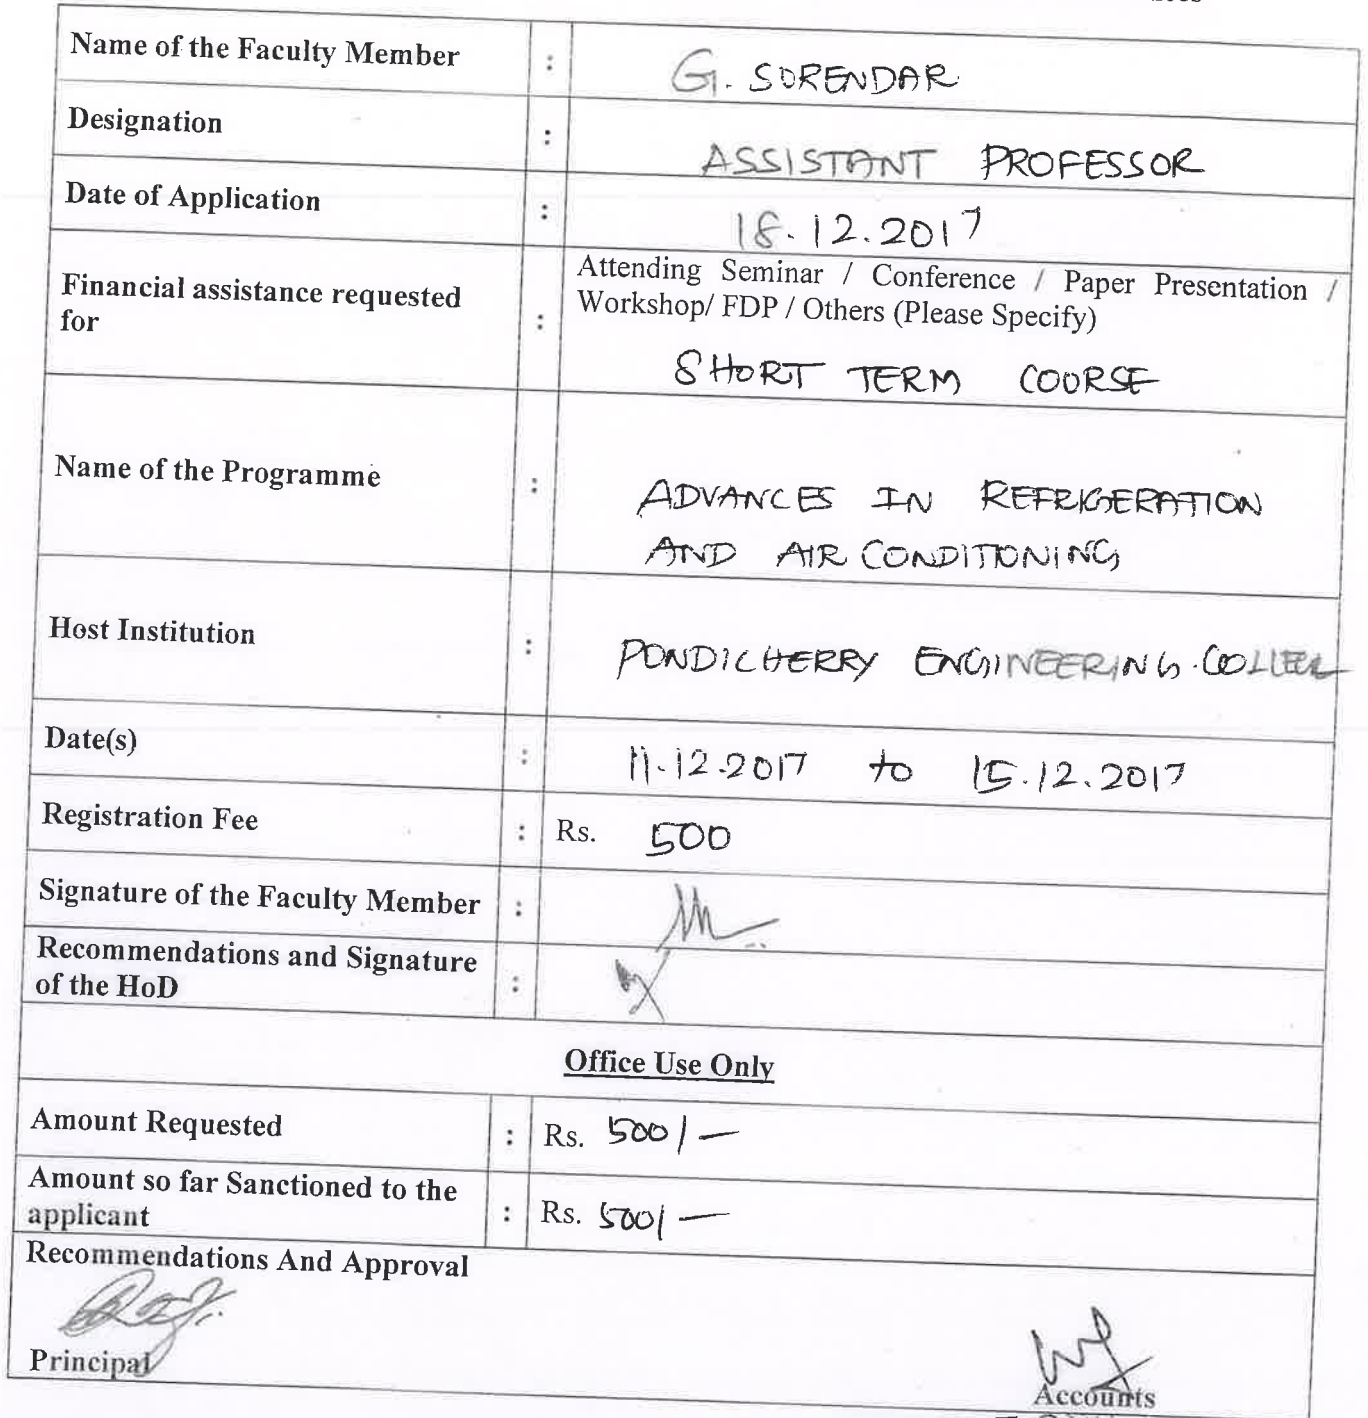 Name of the Faculty Member : G. SURENDAR
Designation : ASSISTANT PROFESSOR
Date of Application : 18.12.2017
Financial assistance requested for : Attending Seminar / Conference / Paper Presentation /
Workshop/ FDP / Others (Please Specify)
SHORT TERM COURSE
Name of the Programme : ADVANCES IN REFRIGERATION
AND AIR CONDITIONING
Host Institution : PONDICHERRY ENGINEERING COLLEGE
Date(s) : 11.12.2017 to 15.12.2017
Registration Fee : Rs. 500
Signature of the Faculty Member :
Recommendations and Signature
of the HoD :
Office Use Only
Amount Requested : Rs. 500/—
Amount so far Sanctioned to the
applicant : Rs. 500/—
Recommendations And Approval
Principal
Accounts